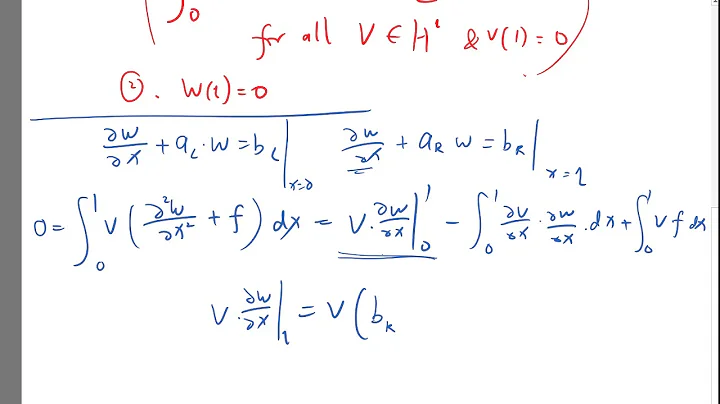 ∫₀
for all V ∈ H¹ & V(1) = 0
②. W(1) = 0
∂w/∂x + a_L · w = b_L |_{x=0}   ∂w/∂x + a_R w = b_R |_{x=1}
0 = ∫₀¹ V (∂²w/∂x² + f) dx = V · ∂w/∂x |₀¹ − ∫₀¹ ∂v/∂x · ∂w/∂x · dx + ∫₀¹ V f dx
V · ∂w/∂x |₁ = V ( b_R